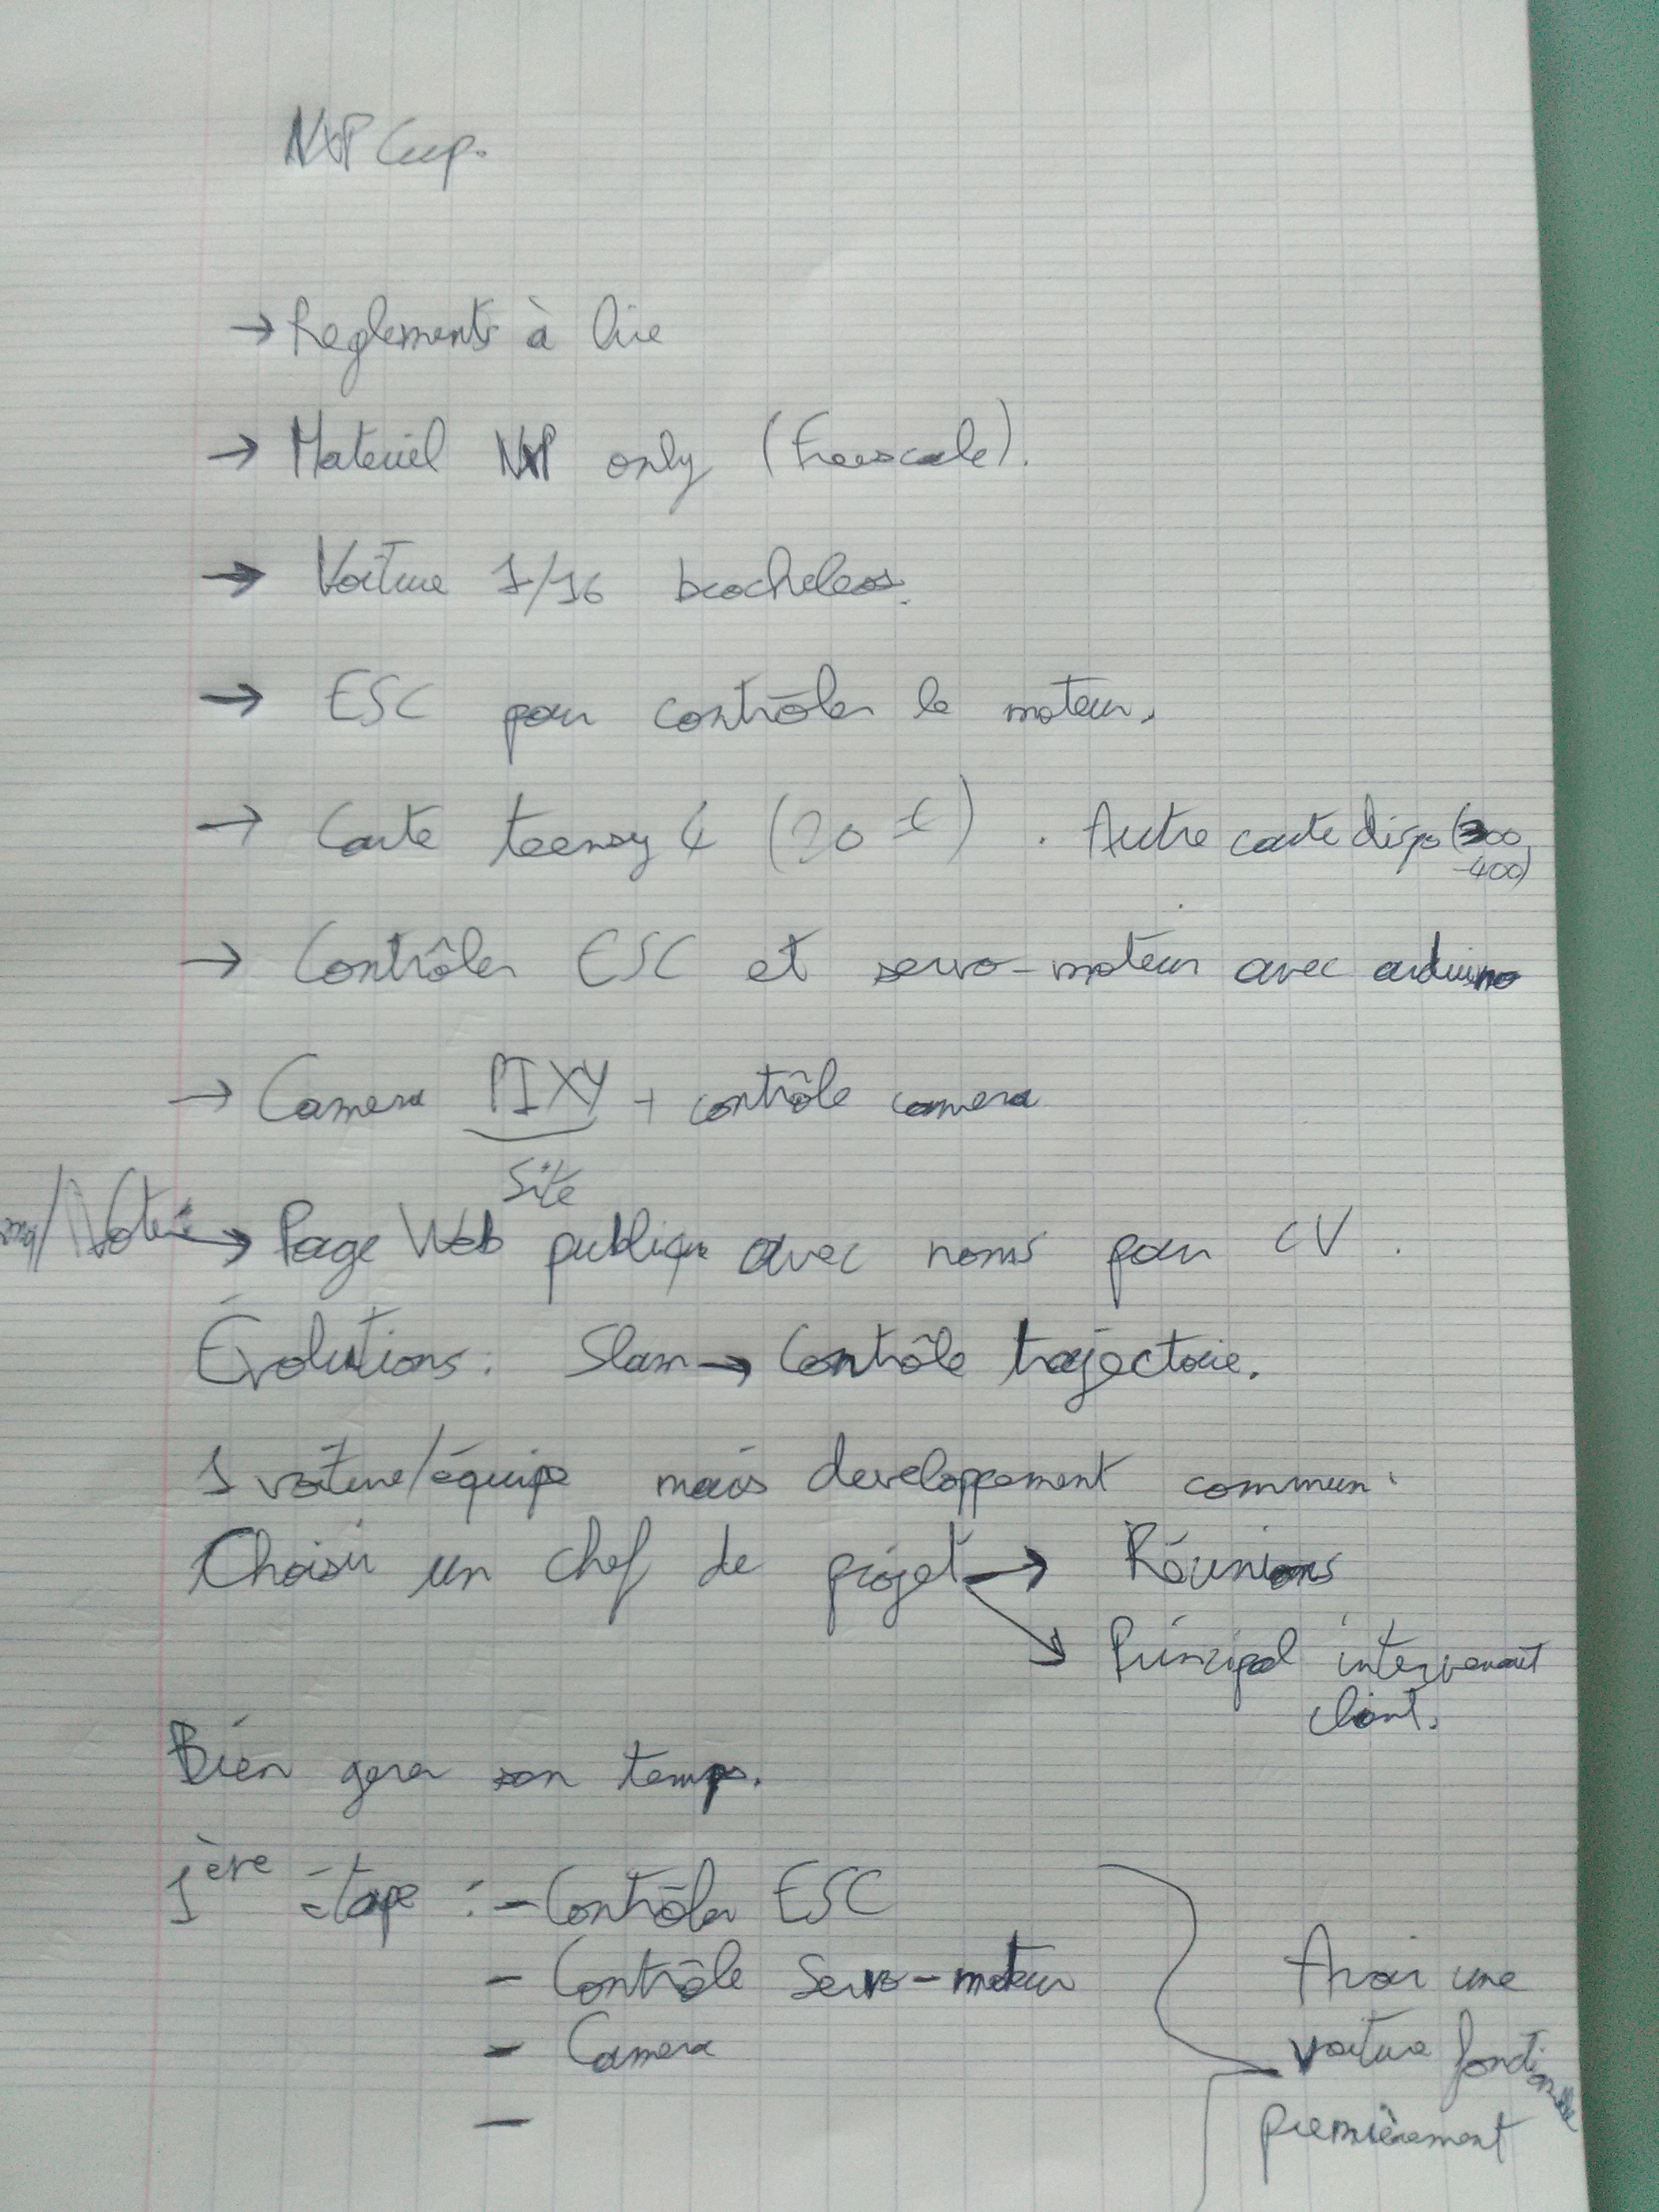 NXP Cup.
→ Reglements à lire
→ Materiel NXP only (Freescale).
→ Voiture 1/16 brocheless.
→ ESC pour contrôler le moteur.
→ Carte teensy 4 (20 €). Autre carte dispo (300
-400)
→ Contrôler ESC et servo-moteur avec arduino
→ Camera PIXY + contrôle camera
Site
→ Page Web publique avec noms pour CV.
Évolutions: Slam → Contrôle trajectoire.
1 voiture/équipe mais developpement commun.
Choisir un chef de projet → Réunions
Principal intervenant
client.
Bien gerer son temps.
1ère étape : - Contrôler ESC
- Contrôle Servo-moteur
- Camera
-
Avoir une
voiture fonctionnelle
premièrement